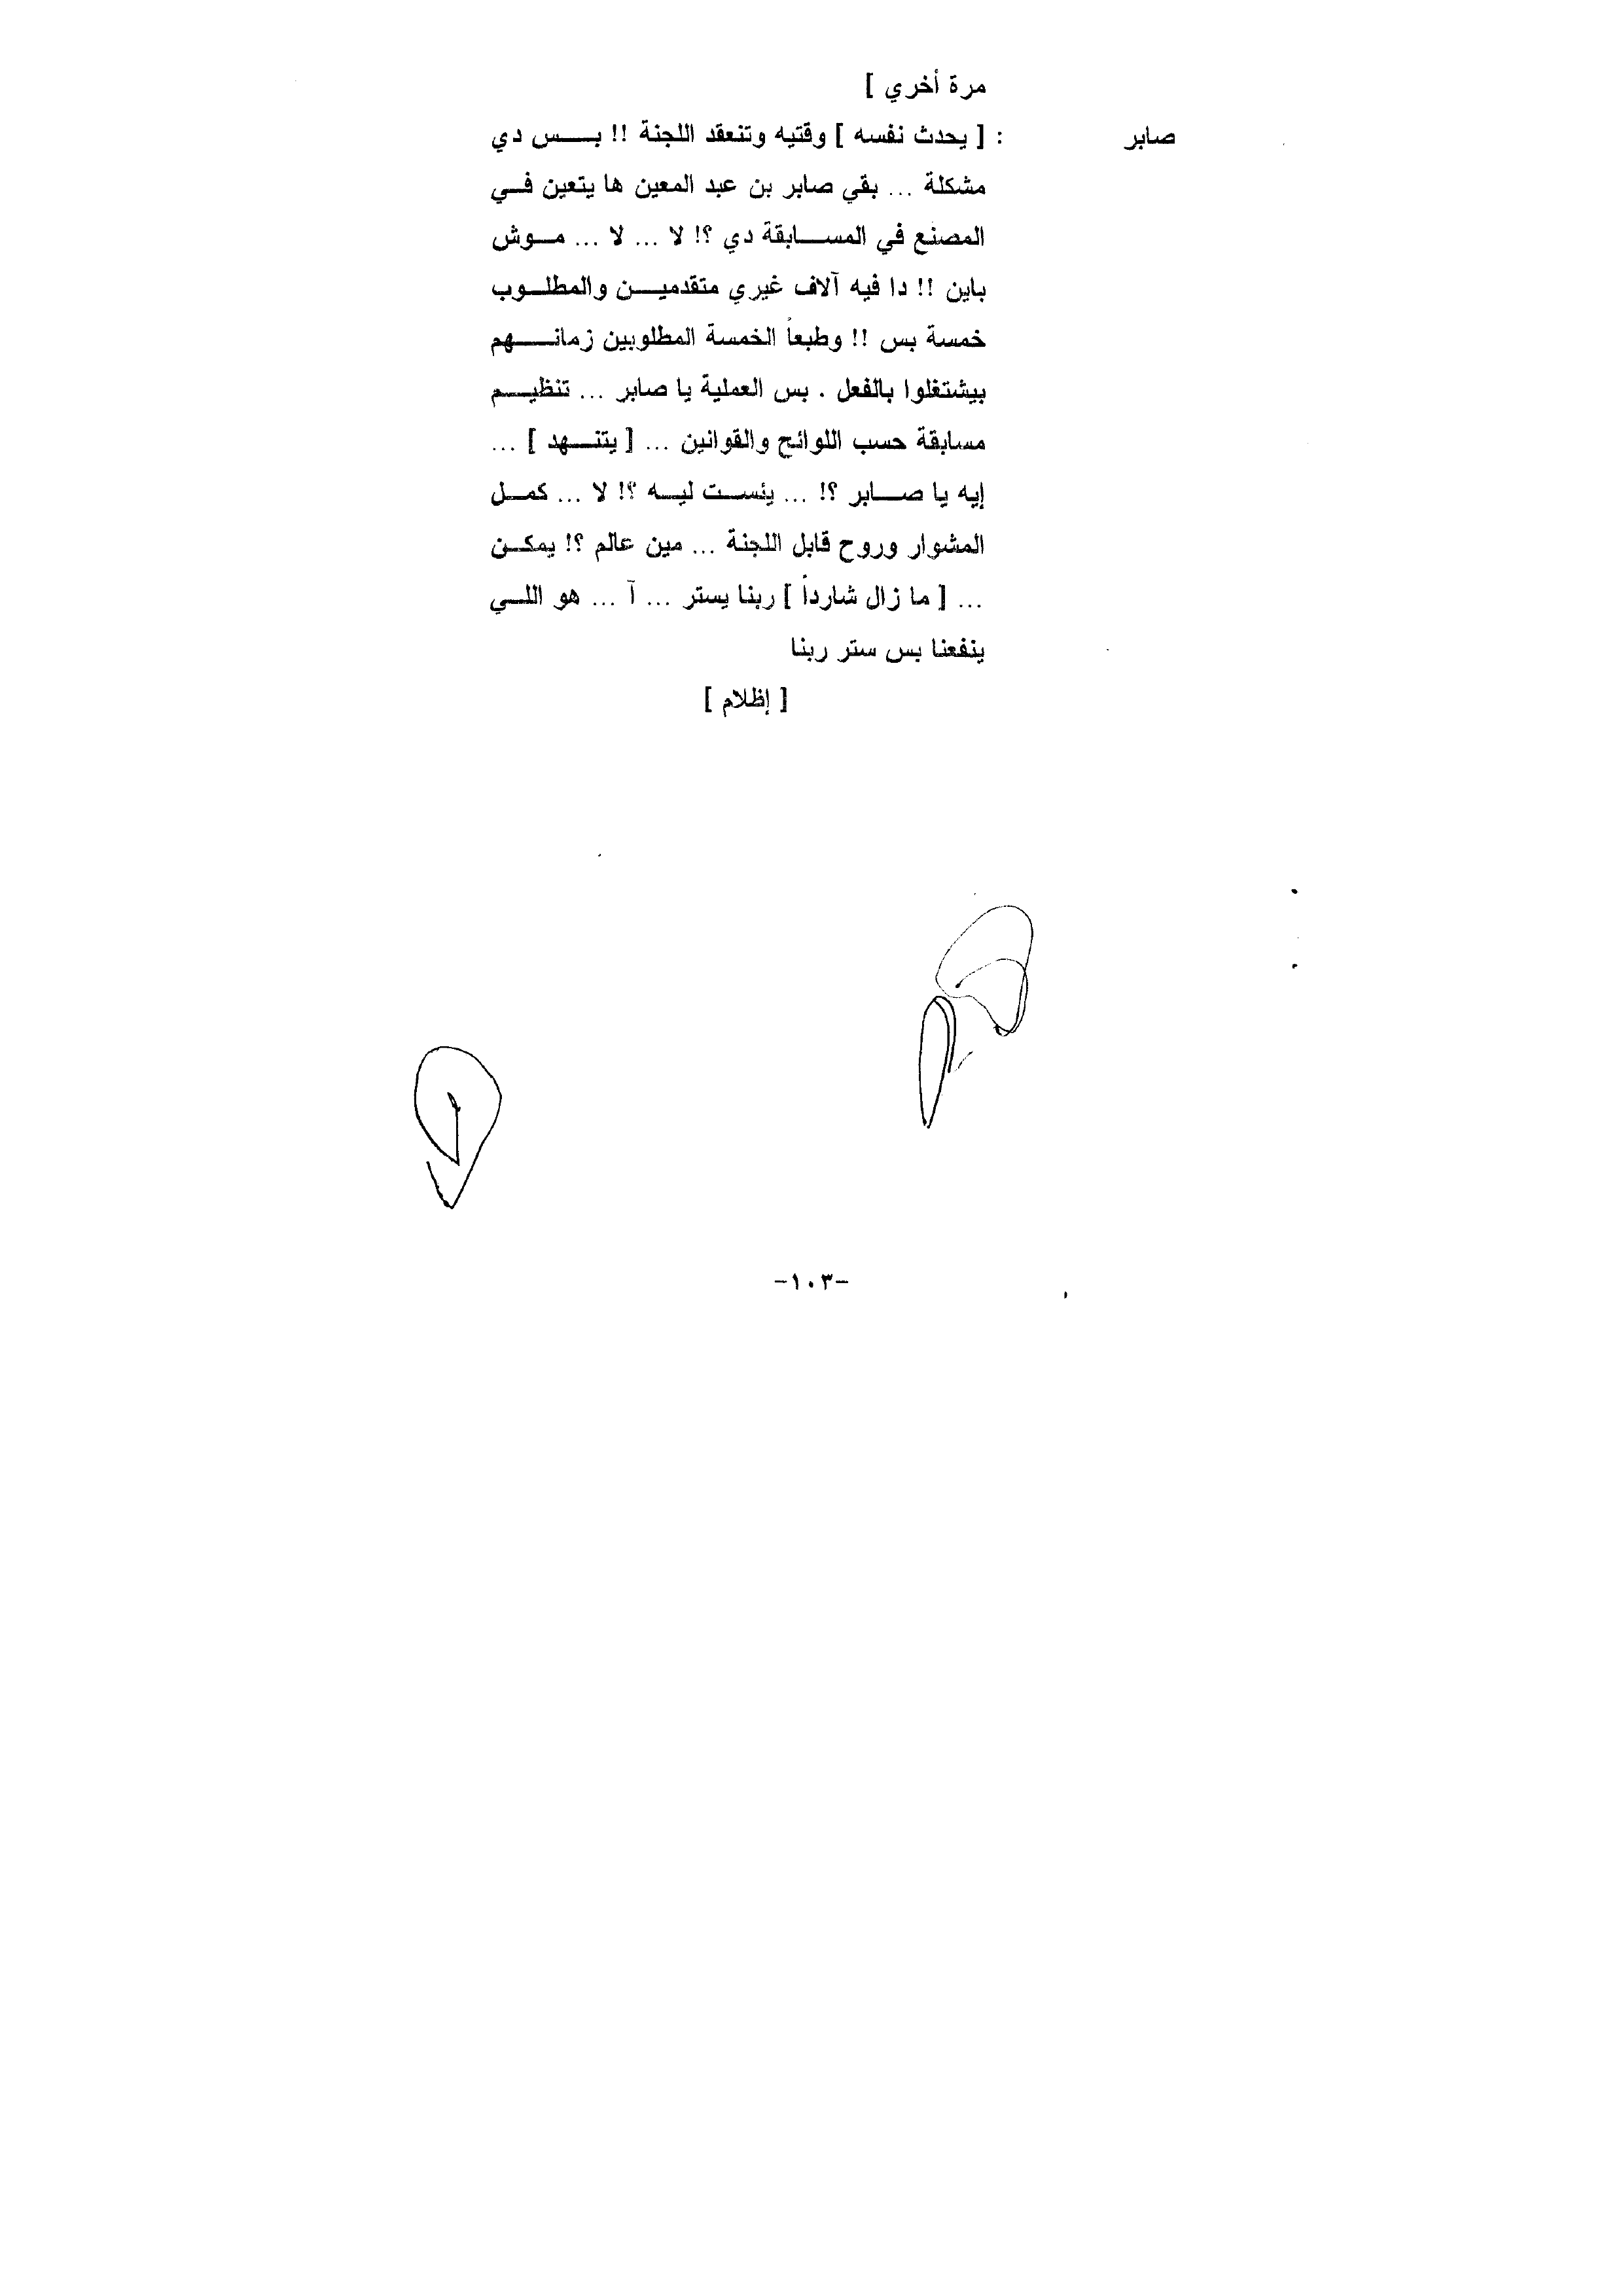 مرة أخري ]
صابر : [ يحدث نفسه ] وقتيه وتنعقد اللجنة !! بس دي
مشكلة ... بقي صابر بن عبد المعين ها يتعين في
المصنع في المسابقة دي ؟! لا ... لا ... موش
باين !! دا فيه آلاف غيري متقدمين والمطلوب
خمسة بس !! وطبعاً الخمسة المطلوبين زمانهم
بيشتغلوا بالفعل . بس العملية يا صابر ... تنظيم
مسابقة حسب اللوائح والقوانين ... [ يتنهد ] ...
إيه يا صابر ؟! ... يئست ليه ؟! لا ... كمل
المشوار وروح قابل اللجنة ... مين عالم ؟! يمكن
... [ ما زال شارداً ] ربنا يستر ... آ ... هو اللي
ينفعنا بس ستر ربنا
[ إظلام ]
-١٠٣-